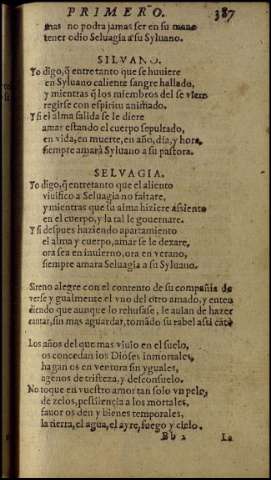 PRIMERO. 387
mas no podra jamas ser en su mano
tener odio Seluagia a su Syluano.
SILVANO.
Yo digo, q̃ entretanto que se huuiere
en Syluano caliente sangre hallado,
y mientras q̃ los miembros del se vieren
regirse con espiritu animado.
Y si el alma salida se le diere
amar estando el cuerpo sepultado,
en vida, en muerte, en año, dia, y hora,
siempre amarà Syluano a su pastora.
SELVAGIA.
Yo digo, q̃ entretanto que el aliento
viuifico a Seluagia no faltare,
y mientras que su alma hiziere assiento
en el cuerpo, y la tal le gouernare.
Y si despues haziendo apartamiento
el alma y cuerpo, amar se le dexare,
ora sea en inuierno, ora en verano,
siempre amara Seluagia a su Syluano.
Sireno alegre con el contento de su compañia de
verse y gualmente el vno del otro amado, y enten
diendo que aunque lo rehusase, le auian de hazer
cantar, sin mas aguardar, tomãdo su rabel assi cãtò
Los años del que mas viuio en el suelo,
os concedan los Dioses inmortales,
hagan os en ventura sin yguales,
agenos de tristeza, y desconsuelo.
No toque en vuestro amor tan solo vn pelo,
de zelos, pestilencia a los mortales,
fauor os den y bienes temporales,
la tierra, el agua, el ayre, fuego y cielo.
Bb 2 La